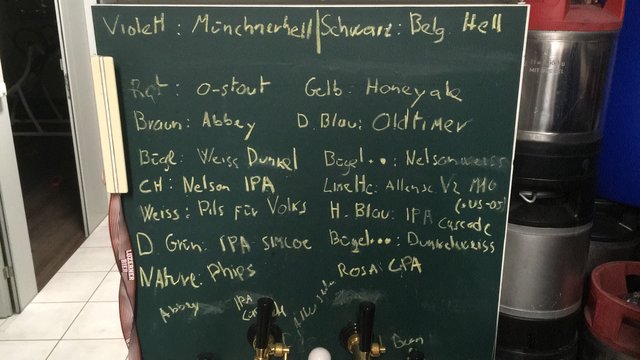 Violett: Münchnerhell | Schwarz: Belg. Hell
Rot: o-stout Gelb: Honeyale
Braun: Abbey D. Blau: Oldtimer
Bügl: Weiss Dunkel Bügel••: Nelsonweiss
CH: Nelson IPA
Weiss: Pils für Volks H. Blau: IPA
Cascade
D. Grün: IPA SIMCOE Bügel•••: Dunkelweiss
NAture: Phips ROSA: CPA
Abbey IPA